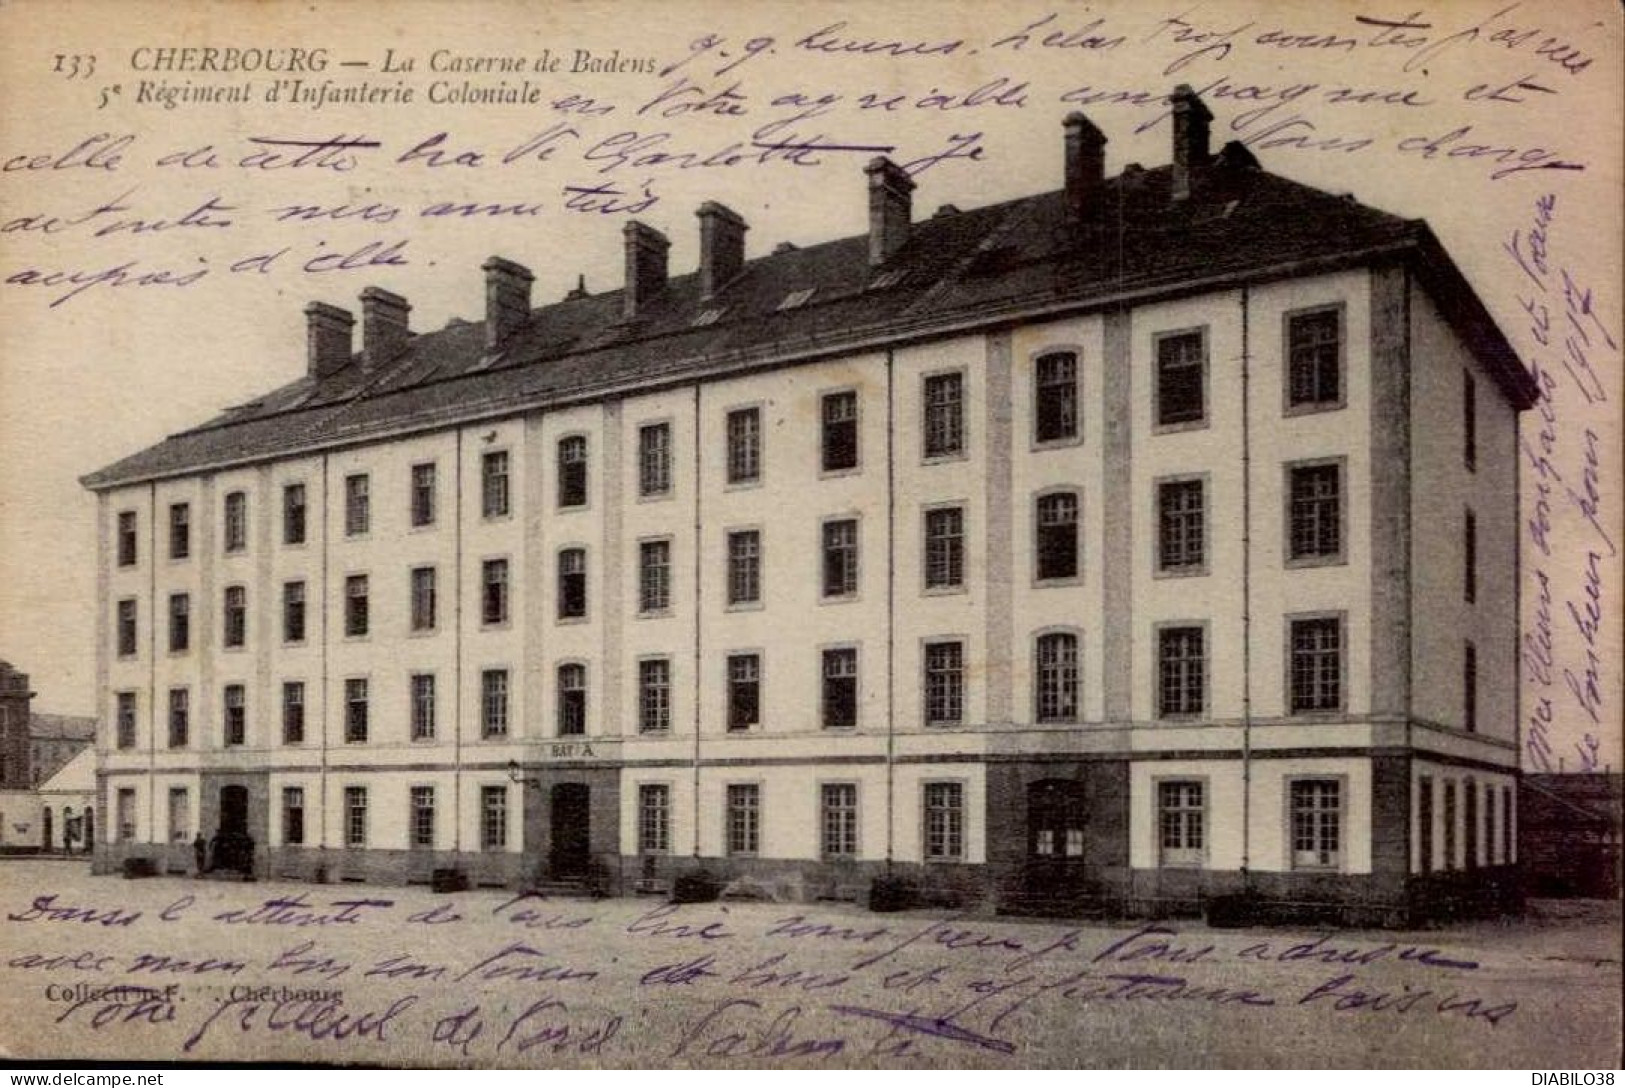 133 CHERBOURG — La Caserne de Badens
5e Régiment d'Infanterie Coloniale
q. q. heures. hélas trop courtes passées
en Votre agréable compagnie et
celle de cette brave Charlotte Je Vous charge
de toutes mes amitiés
auprès d'elle.
Mes meilleurs souhaits et Voeux
de bonheur pour 1917
BAT. A
Dans l'attente de Vous lire sous peu je Vous adresse
avec mon bon souvenir de bons et affectueux baisers
Votre filleul de Nord. Valentin
Collection F. Cherbourg
DIABILO38